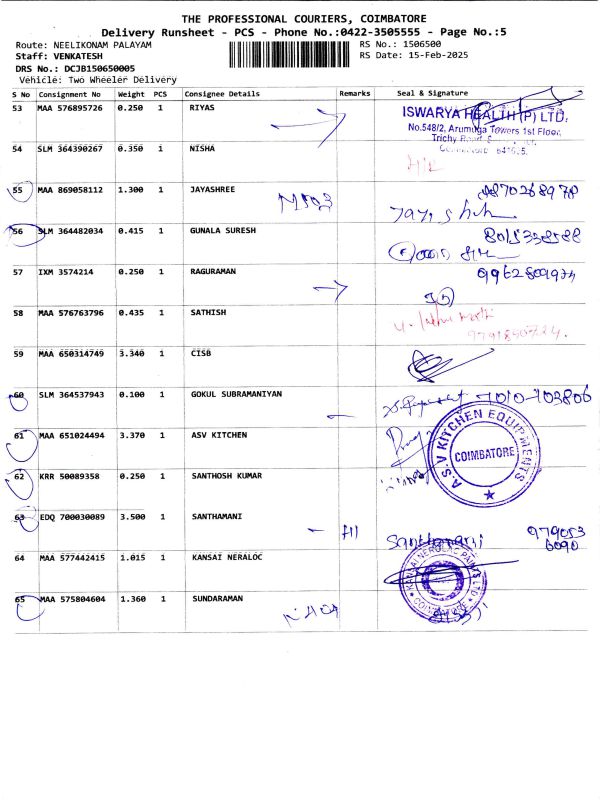 THE PROFESSIONAL COURIERS, COIMBATORE
Delivery Runsheet - PCS - Phone No.:0422-3505555 - Page No.:5
Route: NEELIKONAM PALAYAM
RS No.: 1506500
Staff: VENKATESH
RS Date: 15-Feb-2025
DRS No.: DCJB150650005
Vehicle: Two Wheeler Delivery
S No Consignment No Weight PCS Consignee Details Remarks Seal & Signature
53 MAA 576895726 0.250 1 RIYAS
ISWARYA HEALTH (P) LTD,
No.548/2, Arumuga Towers 1st Floor,
Trichy Road
54 SLM 364390267 0.350 1 NISHA
55 MAA 869058112 1.300 1 JAYASHREE
56 SLM 364482034 0.415 1 GUNALA SURESH
57 IXM 3574214 0.250 1 RAGURAMAN
9962809974
58 MAA 576763796 0.435 1 SATHISH
59 MAA 650314749 3.340 1 CISB
60 SLM 364537943 0.100 1 GOKUL SUBRAMANIYAN
61 MAA 651024494 3.370 1 ASV KITCHEN
A.S.V KITCHEN EQUIPMENTS
COIMBATORE
62 KRR 50089358 0.250 1 SANTHOSH KUMAR
63 EDQ 700030089 3.500 1 SANTHAMANI
Santhamani 979053
6090
64 MAA 577442415 1.015 1 KANSAI NERALOC
65 MAA 575804604 1.360 1 SUNDARAMAN